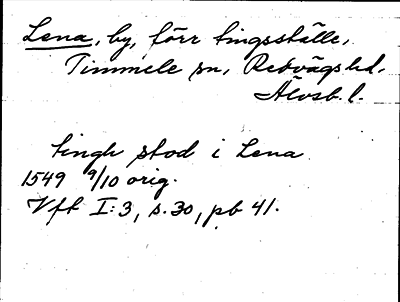 Lena, by, förr tingsställe,
Timmele sn, Redvägs hd.
Älvsb. l.
tingh stod i Lena
1549 9/10 orig.
Vft I:3, s. 30, pb 41.